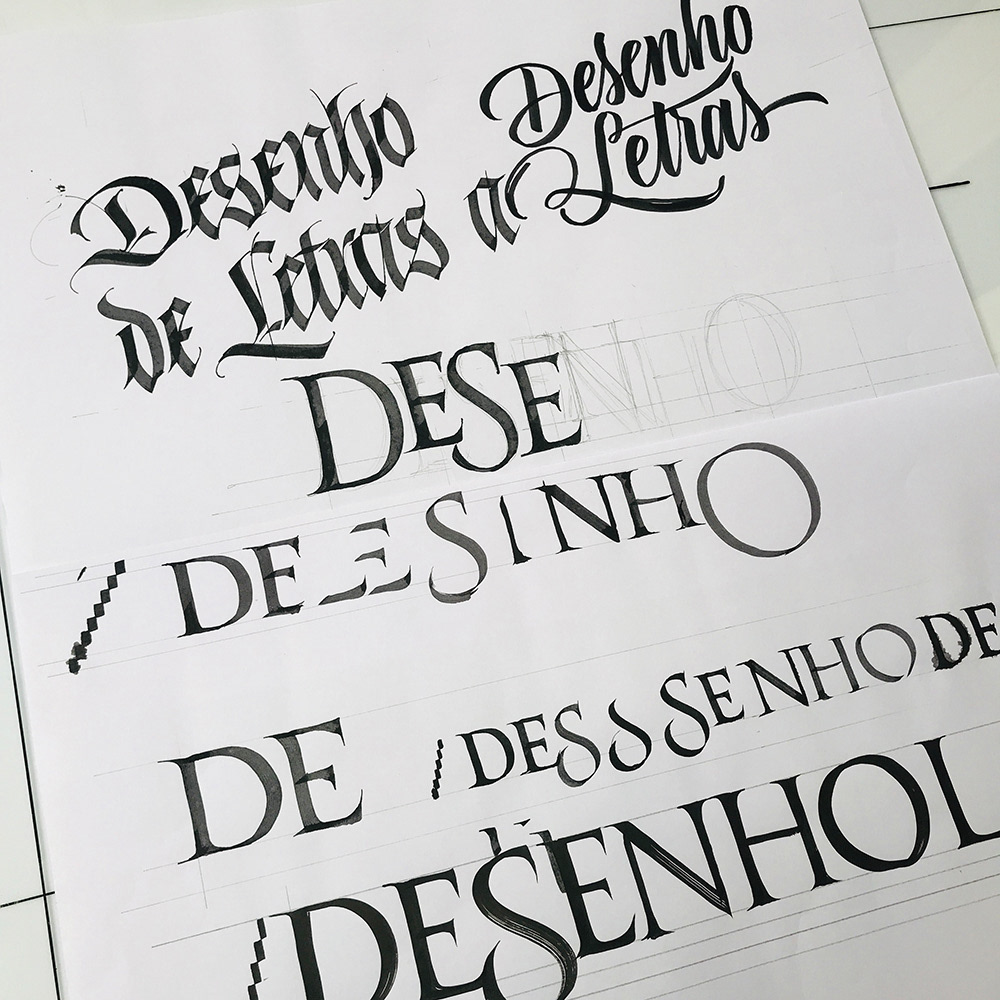 Desenho
Letras
Desenho
de Letras a
DESENHO
DEESINHO
DE
DESSSENHO DE
DESENHO L